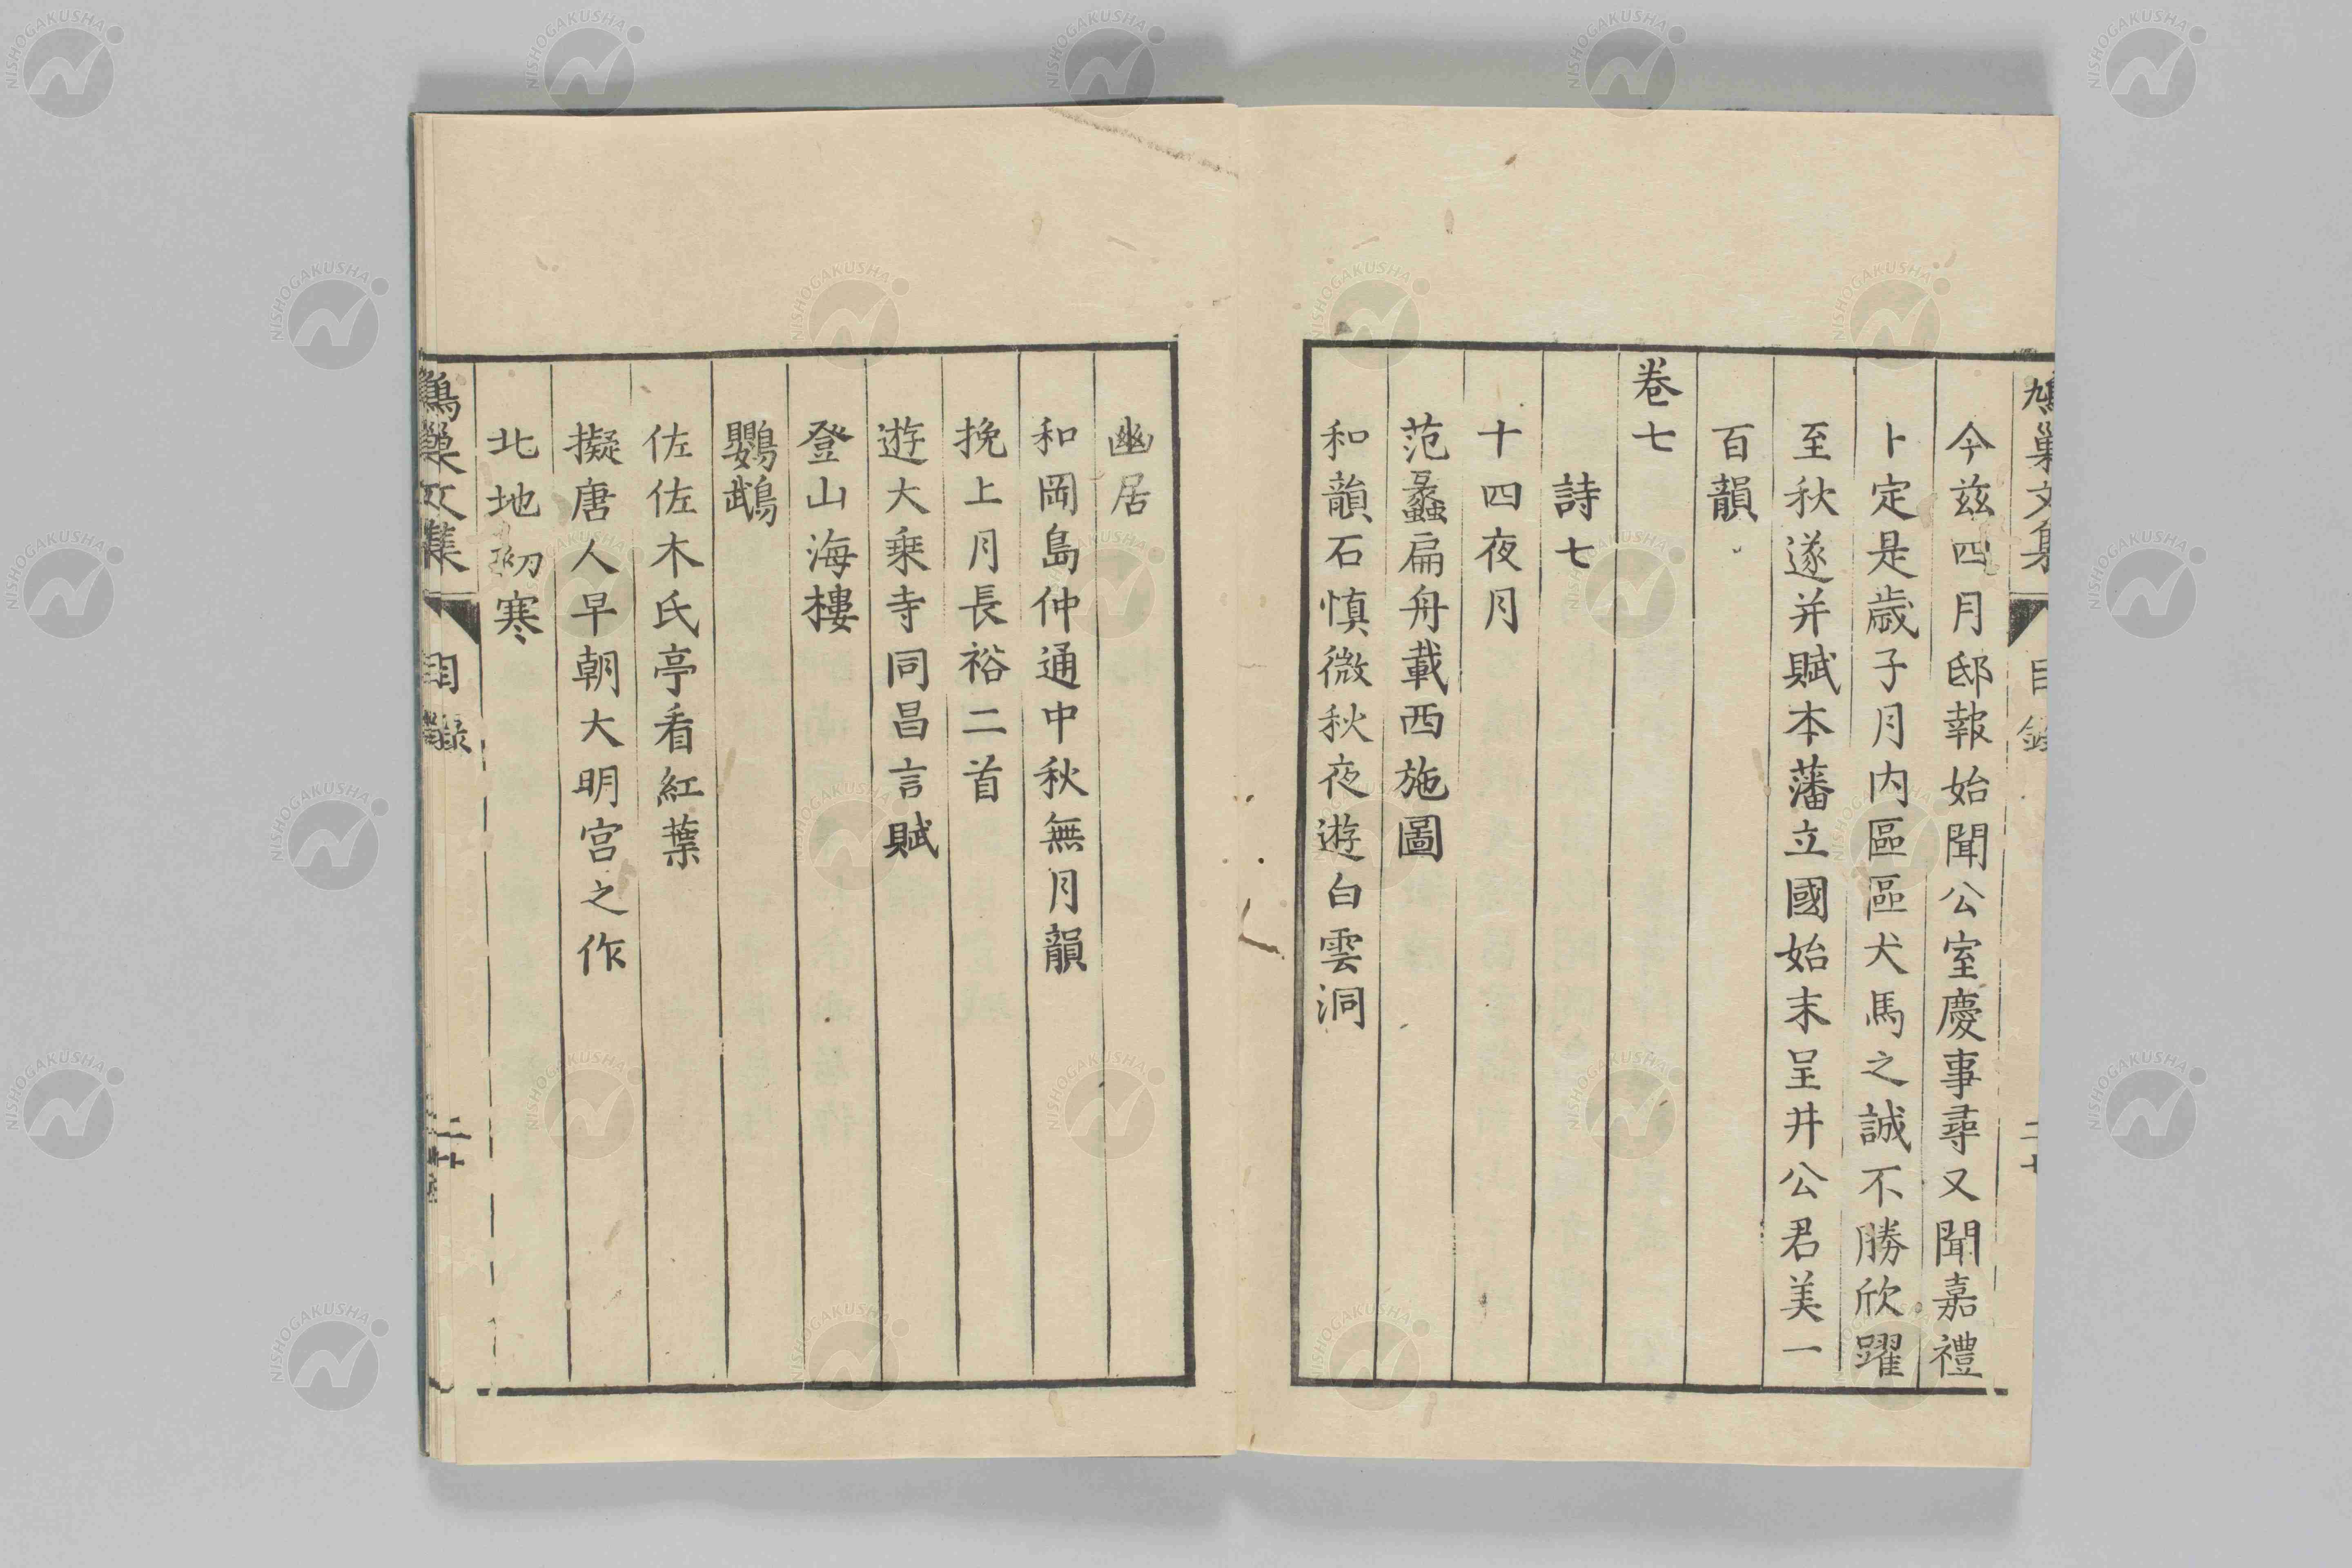 鳩巢文集 目錄
今茲四月邸報始聞公室慶事尋又聞嘉禮
卜定是歲子月内區區犬馬之誠不勝欣躍
至秋遂并賦本藩立國始末呈井公君美一
百韻
卷七
詩七
十四夜月
范蠡扁舟載西施圖
和韻石慎微秋夜遊白雲洞
幽居
和岡島仲通中秋無月韻
挽上月長裕二首
遊大乗寺同昌言賦
登山海樓
鸚鵡
佐佐木氏亭看紅葉
擬唐人早朝大明宮之作
北地初寒
鳩巢文集 目錄
NISHOGAKUSHA